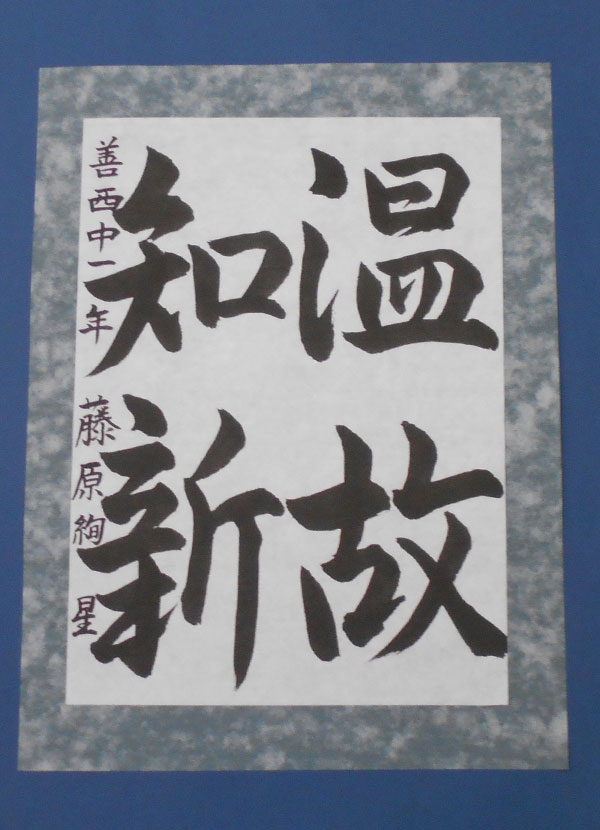 温故
知新
善西中一年 藤原絢星